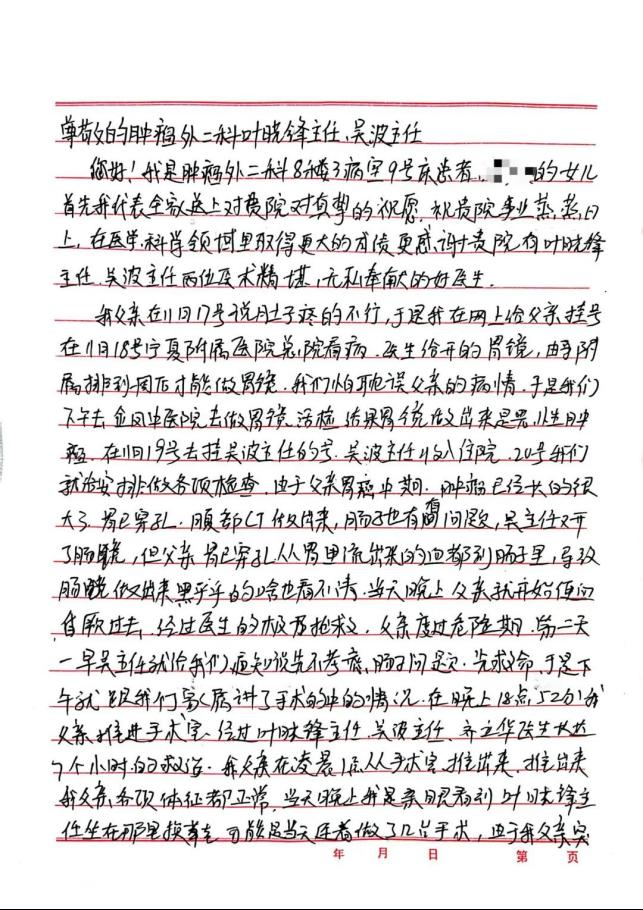 尊敬的肿瘤外二科叶晓锋主任、吴波主任
您好！我是肿瘤外二科8楼3病室9号床患者、的女儿
首先我代表全家送上对贵院对真挚的祝愿，祝贵院事业蒸蒸日
上，在医学科学领域里取得更大的成绩更感谢贵院有叶晓锋
主任、吴波主任两位医术精堪，无私奉献的好医生。
我父亲在11月17号说肚子疼的不行，于是我在网上给父亲挂号
在11月18号宁夏附属医院总院看病。医生给开的胃镜，由于附
属排到周后才能做胃镜。我们怕耽误父亲的病情。于是我们
下午去金凤中医院去做胃镜、活检，结果胃镜做出来是恶性肿
瘤。在11月19号去挂吴波主任的号、吴波主任收入住院。20号我们
就给安排做各项检查，由于父亲胃癌中期。肿瘤已经长的很
大了、胃已穿孔。腹部CT做出来，肠子也有问题，吴主任又开
了肠镜，但父亲胃已穿孔从胃里流出来的血都到肠子里，导致
肠镜做出来黑乎乎的啥也看不清。当天晚上父亲就开始便血
昏厥过去，经过医生的极力抢救，父亲度过危险期，第二天
一早吴主任就给我们通知说先不考虑，肠子问题。先救命，于是下
午就跟我们家属讲了手术的中的情况。在晚上18点52分我
父亲推进手术室，经过叶晓锋主任、吴波主任、齐立华医生长达
7个小时的救治。我父亲在凌晨1点从手术室推出来，推出来
我父亲各项体征都正常，当天晚上我是亲眼看到叶晓锋主
任坐在那里揉拳，可能是当天连着做了几台手术，由于我父亲实
年 月 日 第 页